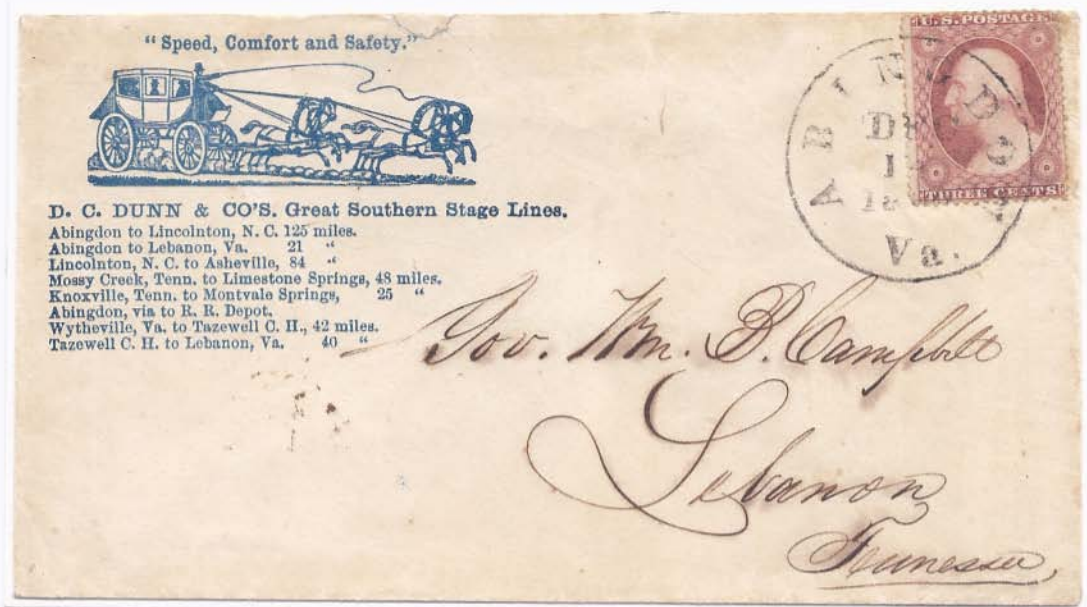 "Speed, Comfort and Safety."
D. C. DUNN & CO'S. Great Southern Stage Lines.
Abingdon to Lincolnton, N. C. 125 miles.
Abingdon to Lebanon, Va. 21 "
Lincolnton, N. C. to Asheville, 84 "
Mossy Creek, Tenn. to Limestone Springs, 48 miles.
Knoxville, Tenn. to Montvale Springs, 25 "
Abingdon, via to R. R. Depot.
Wytheville, Va. to Tazewell C. H., 42 miles.
Tazewell C. H. to Lebanon, Va. 40 "
U.S. POSTAGE
THREE CENTS
ABINGDON
Va.
Gov. Wm. B. Campbell
Lebanon
Tennessee,